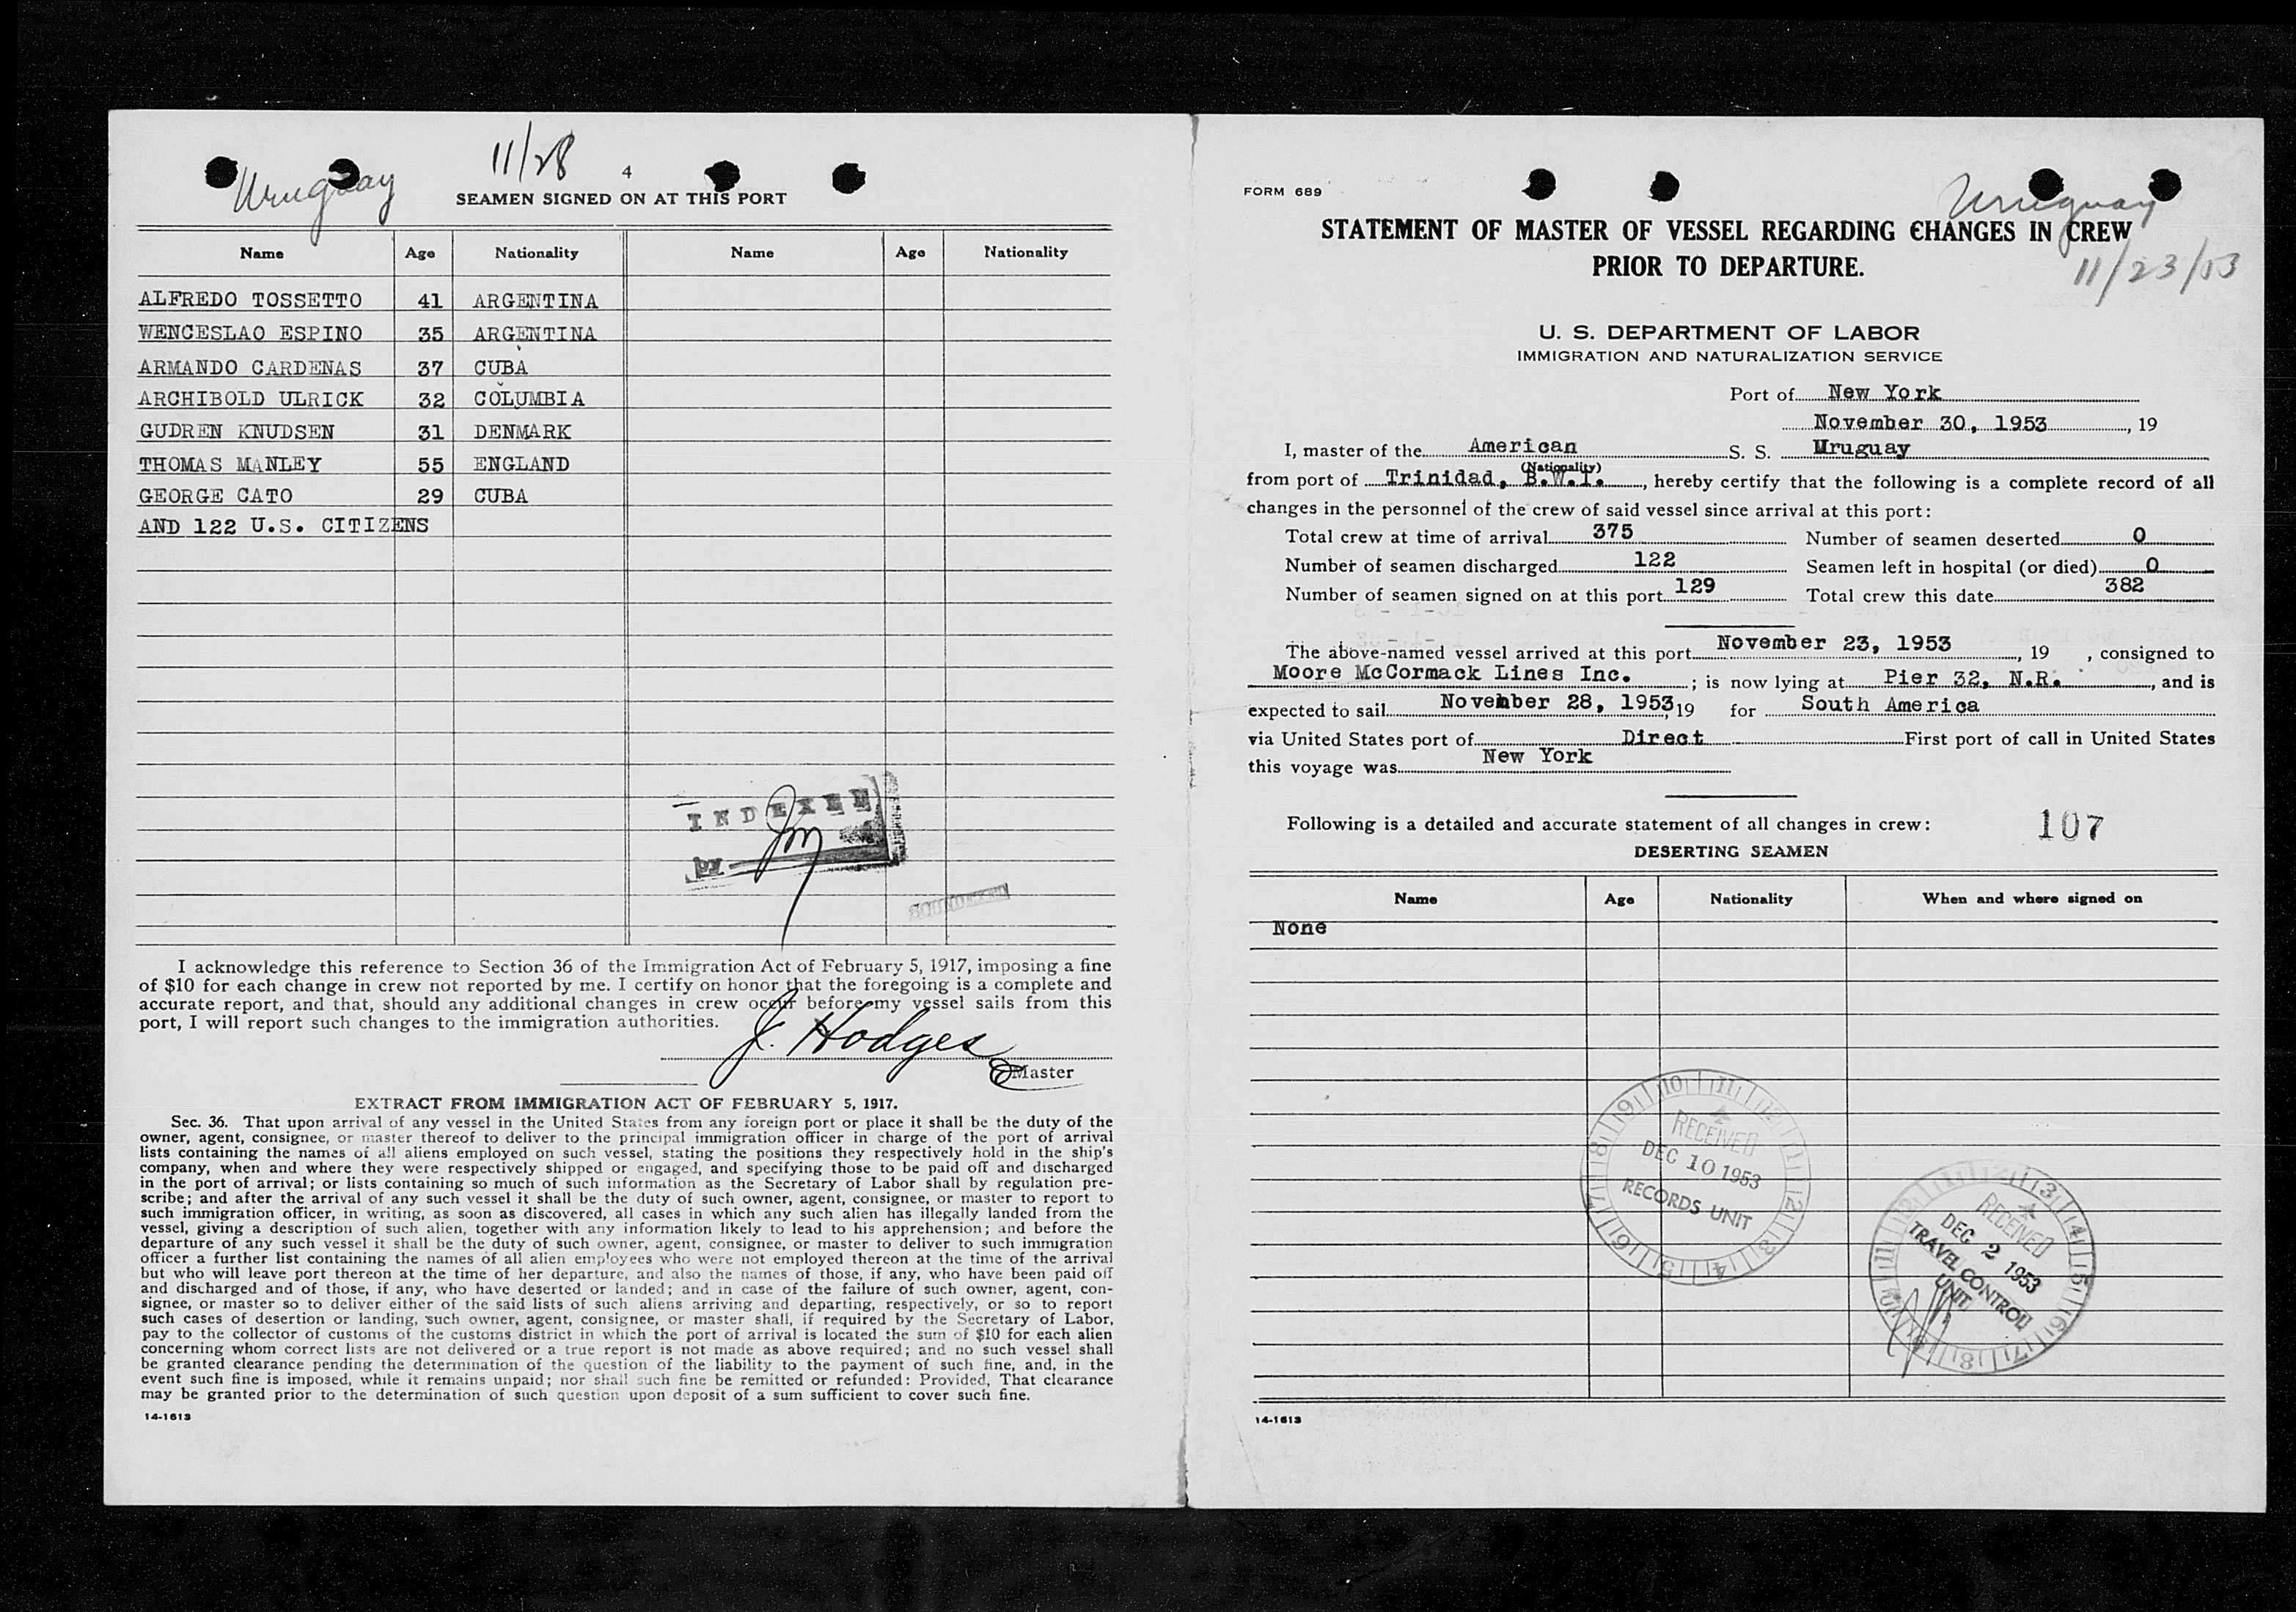 Uruguay
11/28
4
SEAMEN SIGNED ON AT THIS PORT
Name Age Nationality Name Age Nationality
ALFREDO TOSSETTO 41 ARGENTINA
WENCESLAO ESPINO 35 ARGENTINA
ARMANDO CARDENAS 37 CUBA
ARCHIBOLD ULRICK 32 COLUMBIA
GUDREN KNUDSEN 31 DENMARK
THOMAS MANLEY 55 ENGLAND
GEORGE CATO 29 CUBA
AND 122 U.S. CITIZENS
INDEXED
by Jm
SOUNDEXED
I acknowledge this reference to Section 36 of the Immigration Act of February 5, 1917, imposing a fine
of $10 for each change in crew not reported by me. I certify on honor that the foregoing is a complete and
accurate report, and that, should any additional changes in crew occur before my vessel sails from this
port, I will report such changes to the immigration authorities.
J. Hodges
Master
EXTRACT FROM IMMIGRATION ACT OF FEBRUARY 5, 1917.
Sec. 36. That upon arrival of any vessel in the United States from any foreign port or place it shall be the duty of the
owner, agent, consignee, or master thereof to deliver to the principal immigration officer in charge of the port of arrival
lists containing the names of all aliens employed on such vessel, stating the positions they respectively hold in the ship's
company, when and where they were respectively shipped or engaged, and specifying those to be paid off and discharged
in the port of arrival; or lists containing so much of such information as the Secretary of Labor shall by regulation pre-
scribe; and after the arrival of any such vessel it shall be the duty of such owner, agent, consignee, or master to report to
such immigration officer, in writing, as soon as discovered, all cases in which any such alien has illegally landed from the
vessel, giving a description of such alien, together with any information likely to lead to his apprehension; and before the
departure of any such vessel it shall be the duty of such owner, agent, consignee, or master to deliver to such immigration
officer a further list containing the names of all alien employees who were not employed thereon at the time of the arrival
but who will leave port thereon at the time of her departure, and also the names of those, if any, who have been paid off
and discharged and of those, if any, who have deserted or landed; and in case of the failure of such owner, agent, con-
signee, or master so to deliver either of the said lists of such aliens arriving and departing, respectively, or so to report
such cases of desertion or landing, such owner, agent, consignee, or master shall, if required by the Secretary of Labor,
pay to the collector of customs of the customs district in which the port of arrival is located the sum of $10 for each alien
concerning whom correct lists are not delivered or a true report is not made as above required; and no such vessel shall
be granted clearance pending the determination of the question of the liability to the payment of such fine, and, in the
event such fine is imposed, while it remains unpaid; nor shall such fine be remitted or refunded: Provided, That clearance
may be granted prior to the determination of such question upon deposit of a sum sufficient to cover such fine.
14-1613
FORM 689
Uruguay
11/23/53
STATEMENT OF MASTER OF VESSEL REGARDING CHANGES IN CREW
PRIOR TO DEPARTURE.
U. S. DEPARTMENT OF LABOR
IMMIGRATION AND NATURALIZATION SERVICE
Port of New York
November 30, 1953, 19
I, master of the American S. S. Uruguay
(Nationality)
from port of Trinidad, B.W.I., hereby certify that the following is a complete record of all
changes in the personnel of the crew of said vessel since arrival at this port:
Total crew at time of arrival 375 Number of seamen deserted 0
Number of seamen discharged 122 Seamen left in hospital (or died) 0
Number of seamen signed on at this port 129 Total crew this date 382
The above-named vessel arrived at this port November 23, 1953, 19 , consigned to
Moore McCormack Lines Inc. ; is now lying at Pier 32, N.R. , and is
expected to sail November 28, 1953, 19 for South America
via United States port of Direct First port of call in United States
this voyage was New York
Following is a detailed and accurate statement of all changes in crew: 107
DESERTING SEAMEN
Name Age Nationality When and where signed on
None
RECEIVED
DEC 10 1953
RECORDS UNIT
RECEIVED
DEC 2 1953
TRAVEL CONTROL
UNIT
14-1613